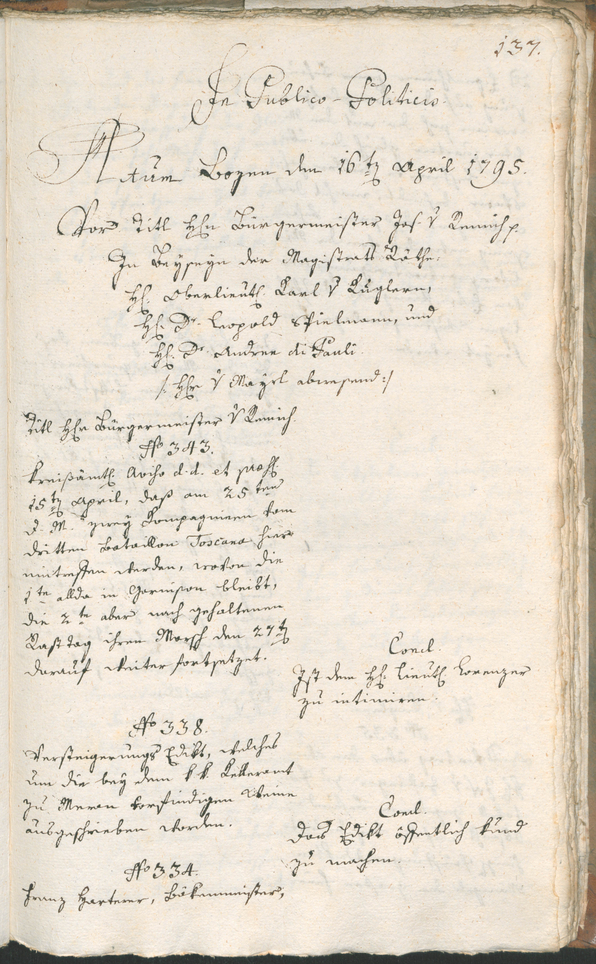 137.
In Publico-Politicis.
Actum Bozen den 16ten April 1795.
Vor Titl Hhn Bürgermeister Jos: v Remich p.
In Beyseyn der Magistrats Räthe:
HH. Oberlieut. Karl v Kuglern,
HH. Dr. Leopold Spielmann, und
HH. Dr. Andree di Pauli.
/: Hhr v Mayrl abwesend :/
Titl Hhr Bürgermeister v Remich.
No 343.
Kreißämtl. Aviso d.d. et præs.
15ten April, daß am 25ten
d. M. zwey Compagnieen vom
dritten Bataillon Toscana hier
eintreffen werden, wovon die
1te allda in Garnison bleibt,
die 2te aber nach gehaltenem
Rasttag ihren Marsch den 27ten
darauf weiter fortsetzet.
Concl.
Ist dem HH. Lieut. Lorenzer
zu intimiren.
No 338.
Versteigerungs Edikt, welches
um die bey dem k.k. Kelleramt
zu Meran vorfindigen Weine
ausgeschrieben worden.
Concl.
Das Edikt öffentlich kund
zu machen.
No 334.
Franz Harterer, Bökenmeister,